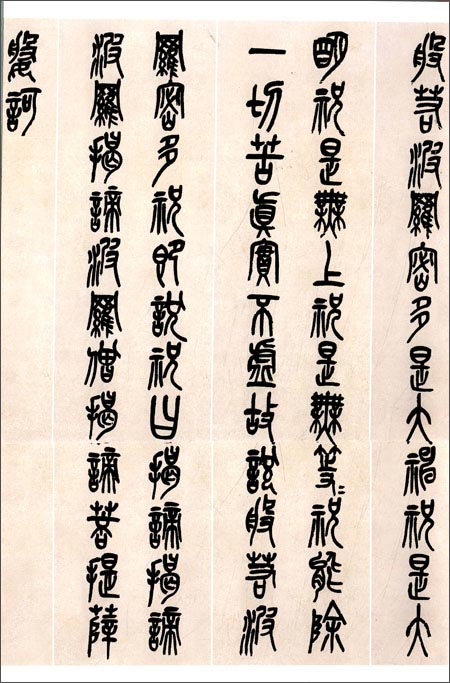 般若波羅密多是大神祝是大
明祝是無上祝是無等〻祝能除
一切苦眞實不虛故說般若波
羅密多祝即說祝曰揭諦揭諦
波羅揭諦波羅僧揭諦菩提薩
媻訶